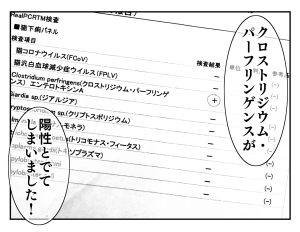 RealPCRTM検査
■猫下痢パネル
検査項目 検査結果
猫コロナウイルス(FCoV) − (-)
猫汎白血球減少症ウイルス(FPLV) − (-)
Clostridium perfringens(クロストリジウム・パーフリンゲ
ンス) エンテロトキシンA + (-)
Giardia sp.(ジアルジア) − (-)
sp.(クリプトスポリジウム) − (-)
モネラ) − (-)
(トリコモナス・フィータス) − (-)
ソプラズマ) − (-)
− (-)
クロストリジウム・
パーフリンゲンスが
陽性とでて
しまいました！